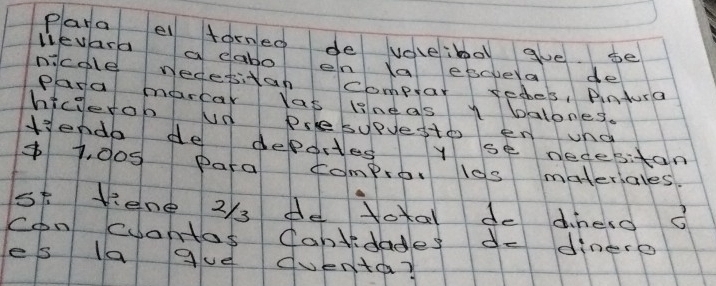 Para el torneo de voleibol que se
llevara a cabo en la escuela de
nicole necesitan comprar redes, Pintura
para marcar las lineas y balones.
hicieron un Presupuesto en una
tienda de deportes y se necesitan
$ 7,005 Para comprar los materiales.
si tiene 2/3 de total de dinero ¿
con cuantas cantidades de dinero
es la que cuenta?